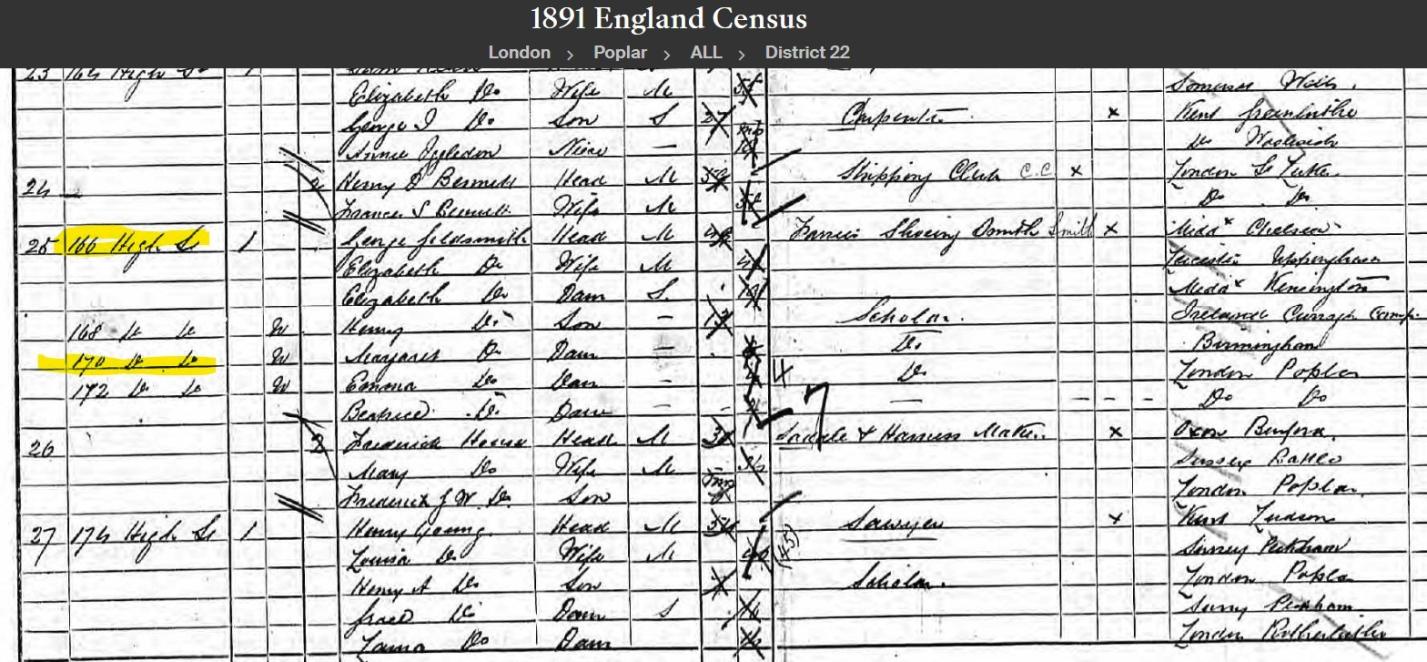 1891 England Census
London > Poplar > ALL > District 22
23 164 High St 1
Elizabeth Do Wife M Somerset Wells
George J Do Son S 27 Carpenter x Kent Greenhithe
Annie Niece — Do Woolwich
24 Henry Bennett Head M Shipping Clerk C.C. x London St Lukes
Frances S Bennett Wife M Do Do
25 166 High St 1 George Goldsmith Head M Farrier Shoeing Smith Smith x Middx Chelsea
Elizabeth Do Wife M Leicester Uppingham
Elizabeth Do Daur S. Middx Kensington
168 Do Do W Henry Do Son — Scholar Ireland Curragh Camp
170 Do Do W Margaret Do Daur — Do Birmingham
172 Do Do W Emma Do Daur — 4 Do London Poplar
Beatrice Do Daur — — Do Do
26 2 Frederick Head M Saddle & Harness Maker x Oxon Burford
Mary Do Wife M Sussex Battle
Frederick J W Do Son London Poplar
27 174 High St 1 Henry Young Head M Sawyer x Kent
Louisa Do Wife M (45) Surrey Peckham
Henry A Do Son Scholar London Poplar
Grace Do Daur S Surrey Peckham
Do Daur London Rotherhithe